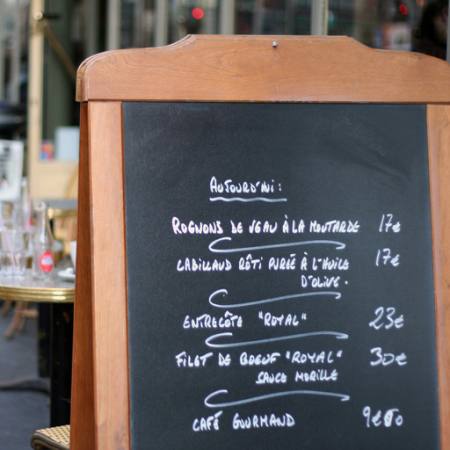 AUJOURD'HUI :
ROGNONS DE VEAU À LA MOUTARDE 17€
CABILLAUD RÔTI PURÉE À L'HUILE 17€
D'OLIVE.
ENTRECÔTE "ROYAL" 23€
FILET DE BOEUF "ROYAL" 30€
SAUCE MORILLE
CAFÉ GOURMAND 9€50